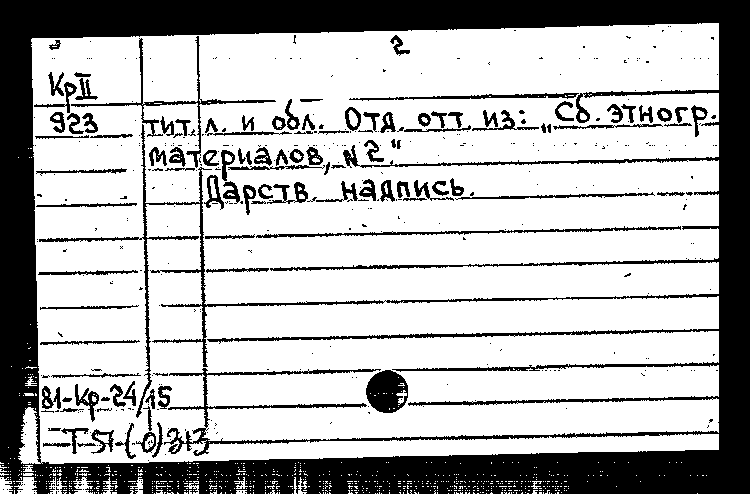 2
Кр II
923 тит. л. и обл. Отд. отт. из: „Сб. этногр.
материалов, № 2."
Дарств. надпись.
81-Кр-24/15
Т-51-(0)313